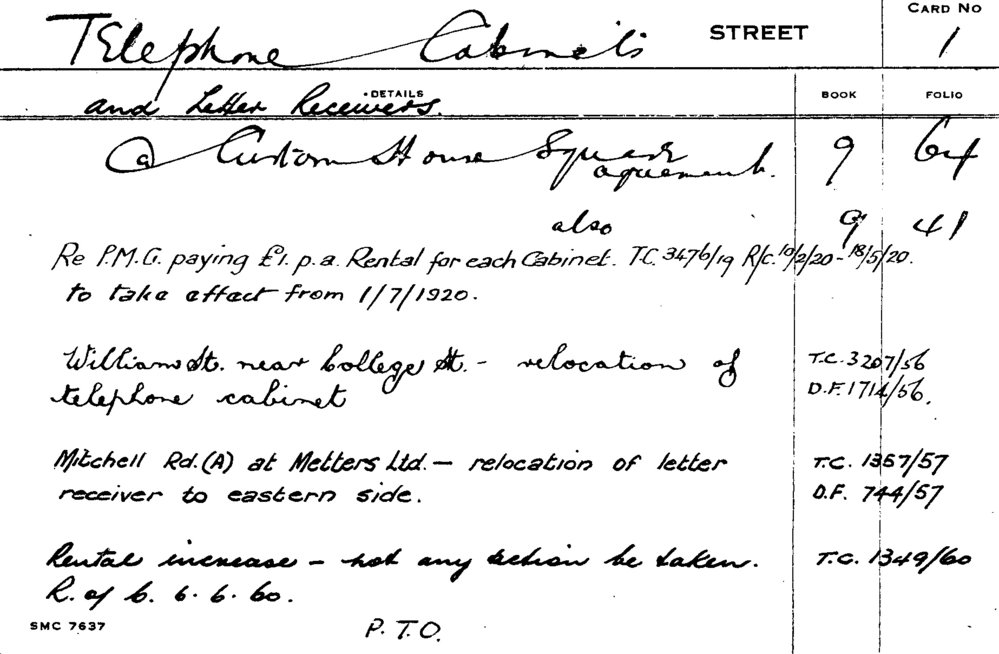 Telephone Cabinets STREET CARD No 1
and Letter Receivers. DETAILS BOOK FOLIO
@ Custom House Square 9 64
agreement.
also 9 41
Re P.M.G. paying £1. p.a. Rental for each Cabinet. T.C. 3476/19 R/C. 10/2/20 - 18/5/20.
to take effect from 1/7/1920.
William St. near College St. - relocation of T.C. 3207/56
telephone cabinet D.F. 1714/56.
Mitchell Rd. (A) at Metters Ltd. - relocation of letter T.C. 1367/57
receiver to eastern side. D.F. 744/57
Rental increase - not any action be taken. T.C. 1349/60
R. of C. 6. 6. 60.
SMC 7637 P.T.O.